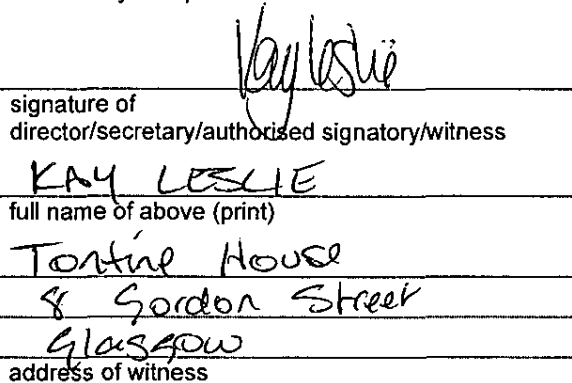 Kay Leslie
signature of
director/secretary/authorised signatory/witness
KAY LESLIE
full name of above (print)
Tontine House
8 Gordon Street
Glasgow
address of witness